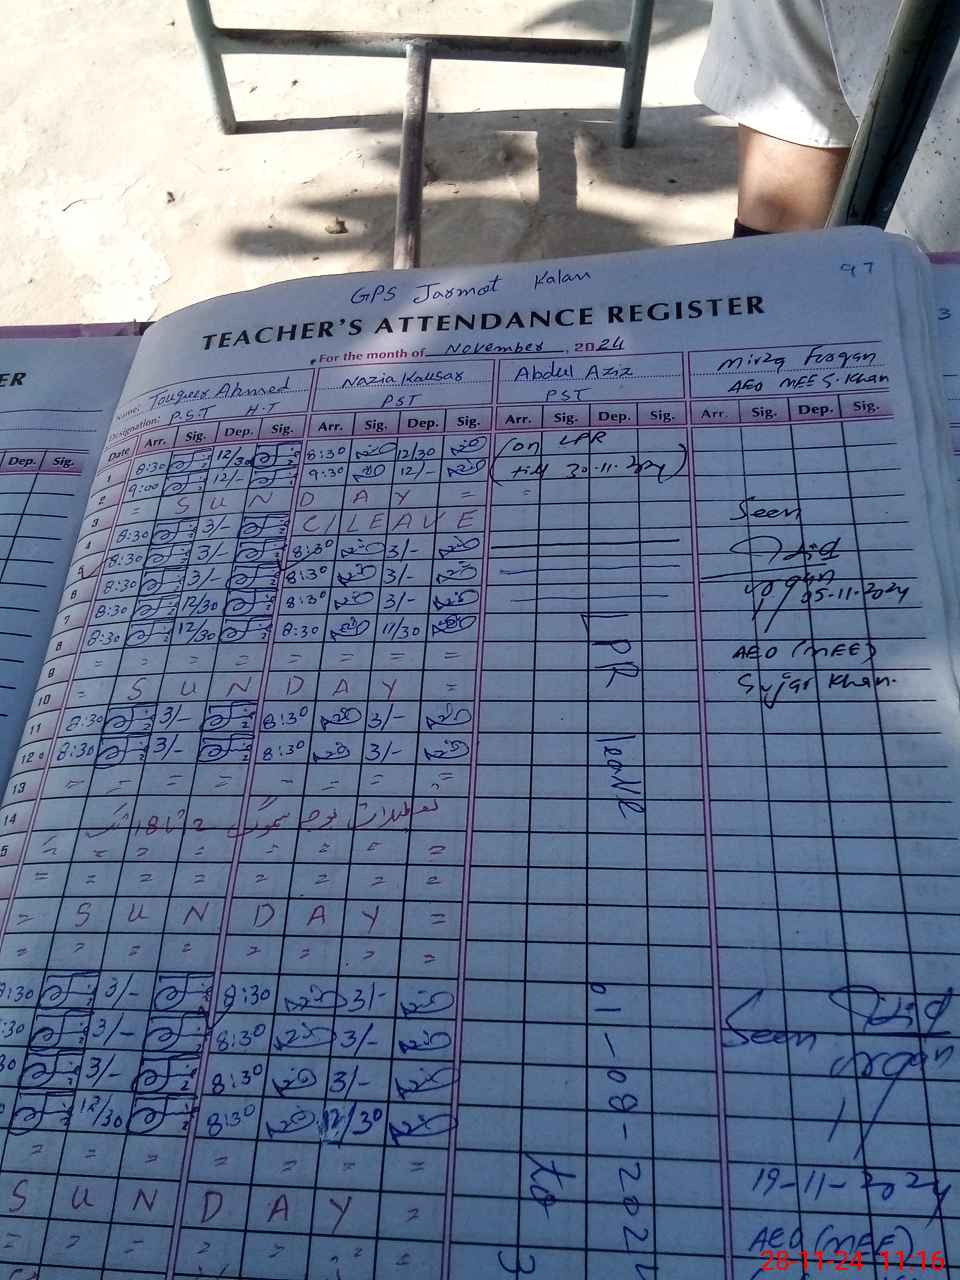 GPS Jarmot Kalan
97
TEACHER'S ATTENDANCE REGISTER
For the month of November, 2024
Name: Touqeer Ahmed Nazia Kausar Abdul Aziz Mirza Furqan
Designation: P.S.T H.T PST PST AEO MEE S. Khan
Date Arr. Sig. Dep. Sig. Arr. Sig. Dep. Sig. Arr. Sig. Dep. Sig. Arr. Sig. Dep. Sig.
1 8:30 12/30 8:30 12/30 (on LPR
2 9:00 12/- 9:30 12/- till 30-11-2024)
3 = S U N D A Y = =
Seen
4 8:30 3/- C/LEAVE
5 8:30 3/- 8:30 3/-
6 8:30 3/- 8:30 3/-
05-11-2024
7 8:30 12/30 8:30 3/-
8 8:30 12/30 8:30 11/30
AEO (MEE)
9 = = = = = = = =
Sujar Khan.
10 = S U N D A Y =
11 8:30 3/- 8:30 3/-
12 8:30 3/- 8:30 3/-
13 = = = = = = = =
14
5 = = = = = = = =
= = = = = = = =
= S U N D A Y =
= = = = = = =
8:30 3/- 8:30 3/-
:30 3/- 8:30 3/-
30 3/- 8:30 3/-
12/30 8:30 12/30
= = = = = = =
S U N D A Y =
= = = = = = =
LPR leave 01-08-2024
to
3
Seen
19-11-2024
AEO (MEE)
ER
Dep. Sig.
3
28-11-24 11:16